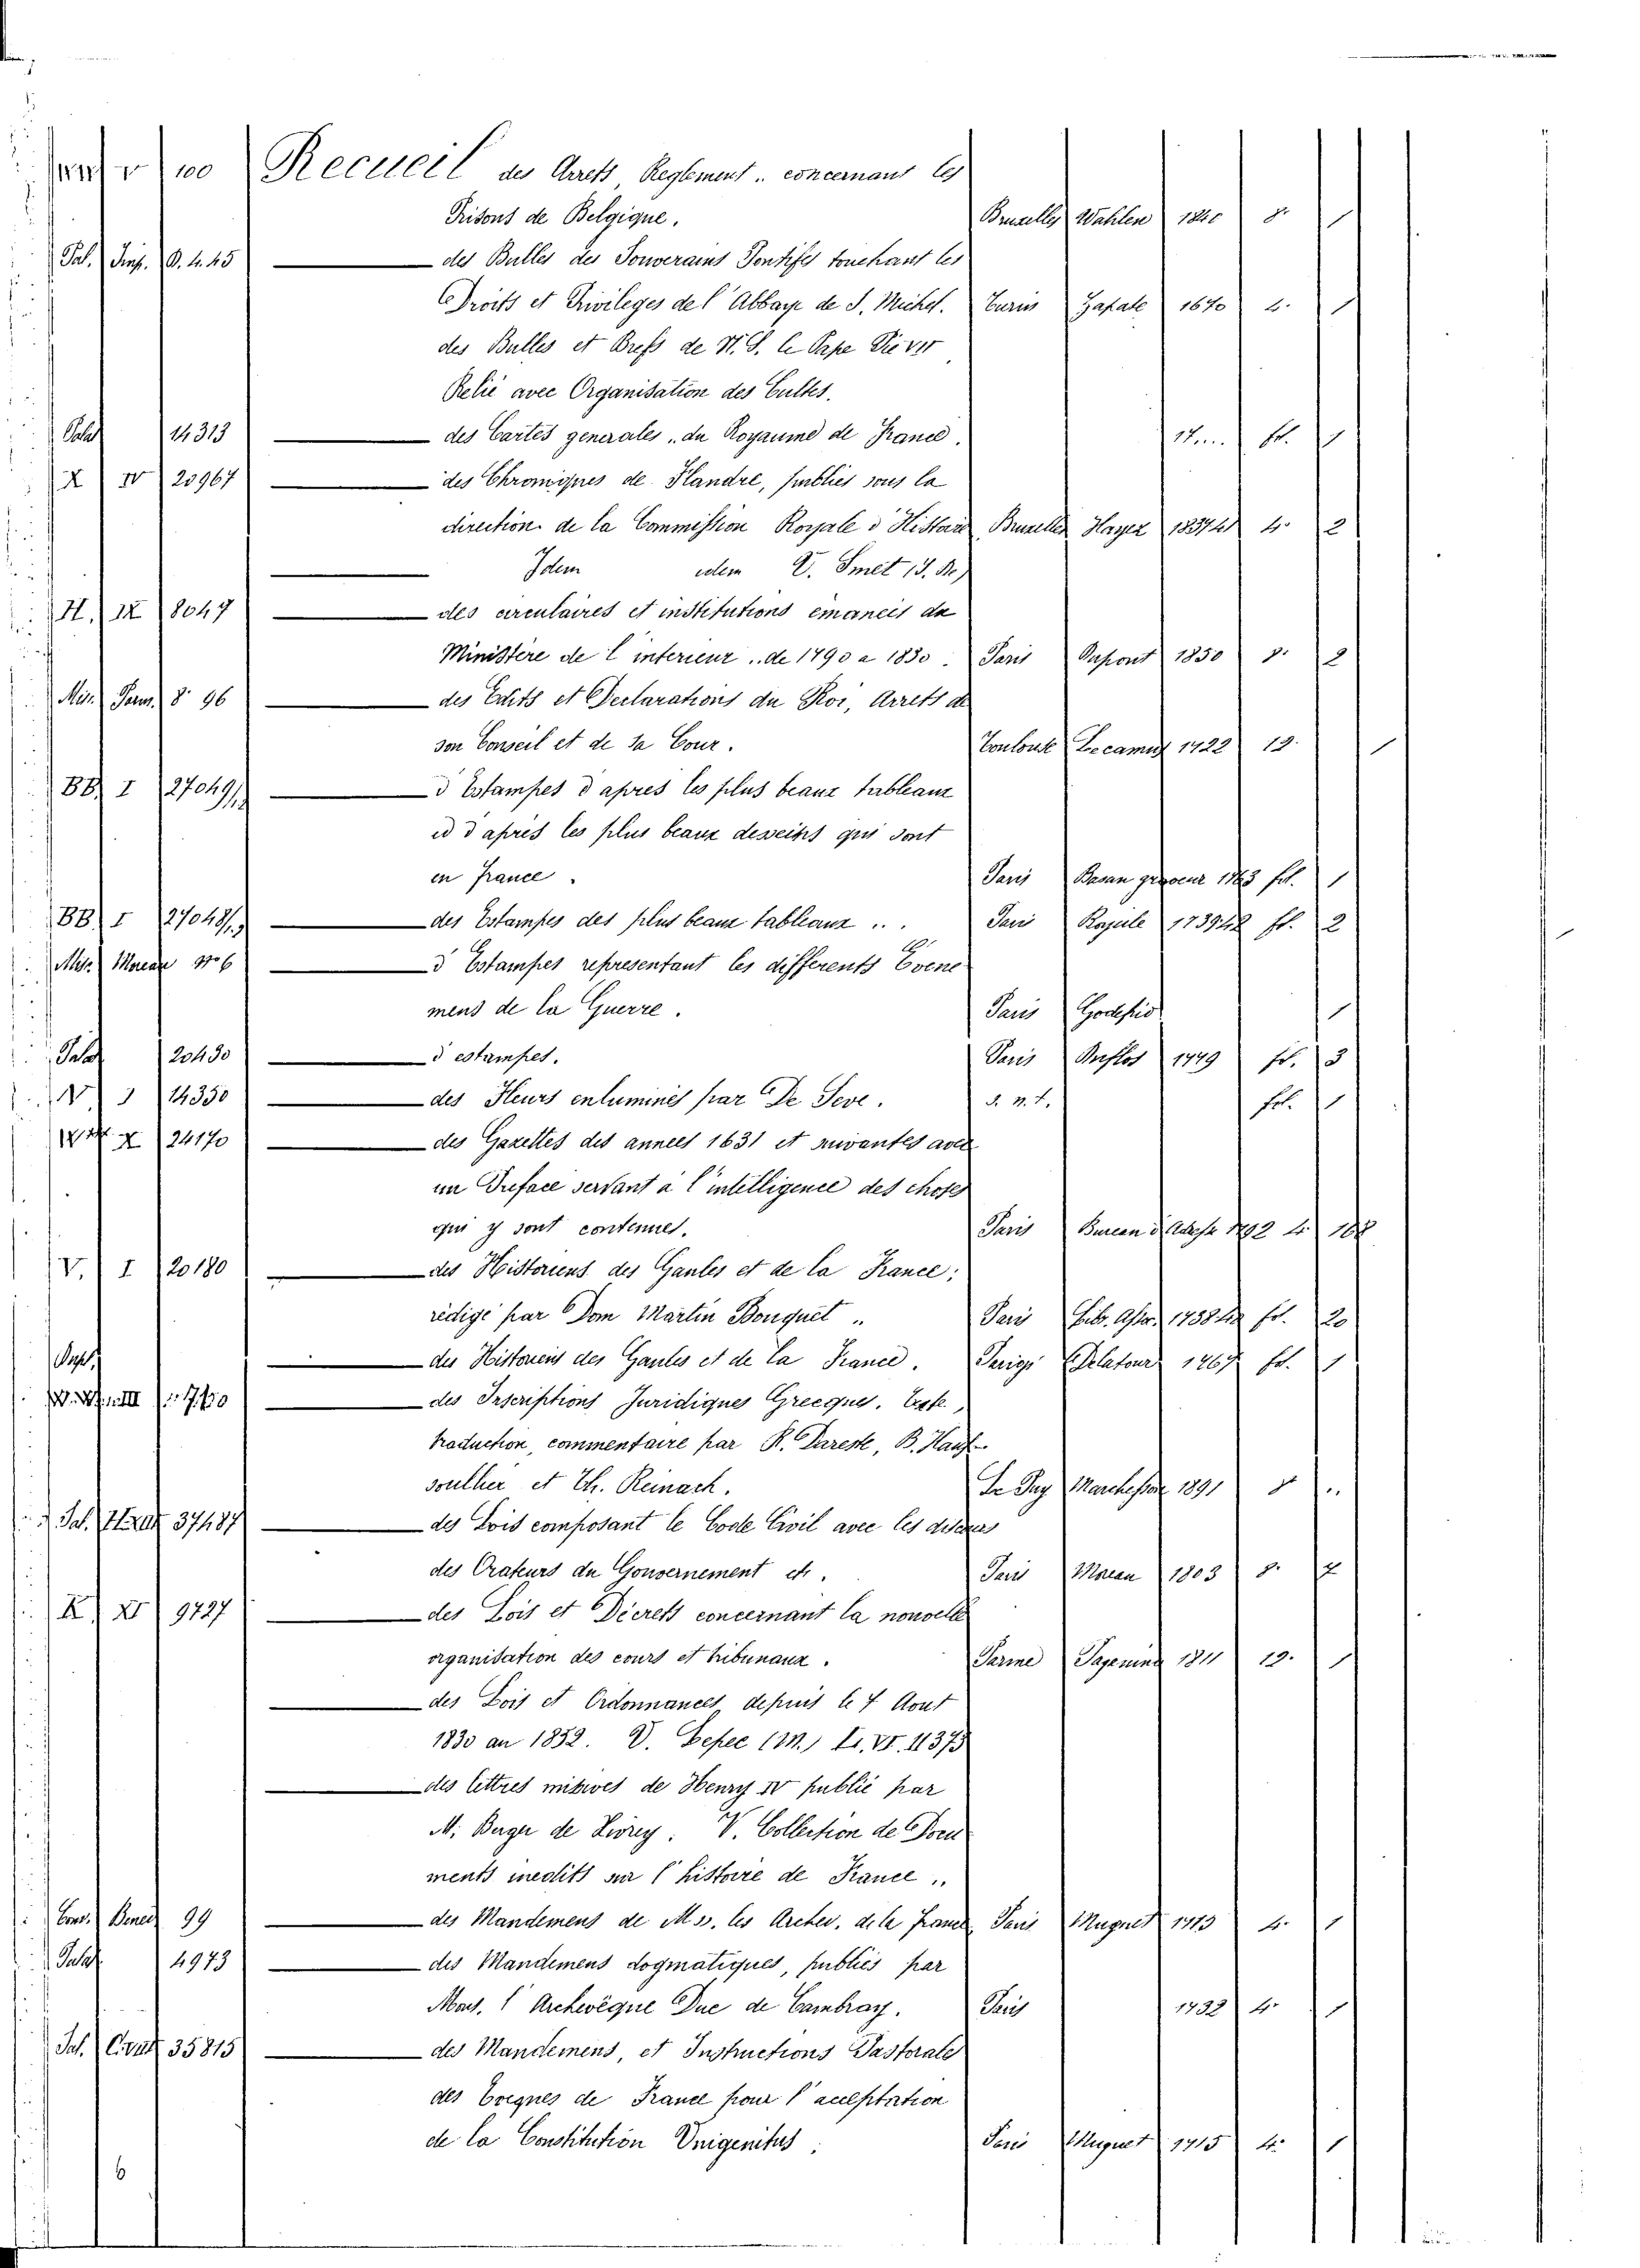 100 Recueil des Arrets, Reglement .. concernant les
Prisons de Belgique. Bruxelles Wahlen 1840 8. 1
Pal. Jnf. O. 4. 45 — des Bulles des Souverains Pontifes touchant les
Droits et Privileges de l'Abbaye de S. Michel. Turin Zapate 1670 4. 1
des Bulles et Brefs de N. S. le Pape Pie VII
Relié avec Organisation des Cultes.
Palat 14313 — des Cartes generales .. du Royaume de France. 17.... fol. 1
X IV 20967 — des Chroniques de Flandre, publiés sous la
direction de la Commission Royale d'Histoire Bruxelles Hayez 1837 41 4. 2
— Idem idem V. Smet (J. de)
H. IX 8047 — des circulaires et institutions emaneés du
Ministère de l'interieur .. de 1790 a 1830. Paris Dupont 1850 8. 2
Mis. Parm. 8. 96 — des Edits et Declarations du Roi, Arrets de
son Conseil et de sa Cour. Toulouse Lecamus 1722 12. 1
BB I 27049/1,2 — d'Estampes d'apres les plus beaux tableaux
et d'aprés les plus beaux desseins qui sont
en france. Paris Basan graveur 1763 fol. 1
BB I 27048/1,2 — des Estampes des plus beaux tableaux ... Paris Royale 1739 42 fl. 2
Mis. Moreau 6 — d'Estampes representant les differents Evene
mens de la Guerre. Paris 1
Palat 20430 — d'estampes. Paris Duflos 1779 fol. 3
14350 — des Fleurs enluminés par De Seve. S. n. t. fol. 1
X 24170 — des Gazettes des anneés 1631 et suivantes avec
un Preface servant à l'intelligence des choses
qui y sont contenues. Paris Bureau d'Adresse 4. 168
V. I 20180 — des Historiens des Gaules et de la France;
rédigé par Dom Martin Bouquet .. Paris fol. 20
Dupl. — des Historiens des Gaules et de la France. Parigi Delatour 1767 fol. 1
— des Inscriptions Juridiques Grecques. Texte,
traduction, commentaire par R. Dareste, B. Haus-
soulher et Th. Reinach. Le Puy Marchessou 1891 8. ..
Pal. 37487 — des Lois composant le Code Civil avec les discours
des Orateurs du Gouvernement etc. Paris Moreau 1803 8.
K XI 9727 — des Lois et Décrets concernant la nouvelle
organisation des cours et tribunaux. Parme Paganino 1811 12. 1
— des Lois et Ordonnances, depuis le 7 Aout
1830 au 1852. V. Lepec (M.) Ii. VI. 11373
— des lettres missives de Henry IV publié par
M. Berger de Xivrey. V. Collection de Docu
ments inedits sur l'histoire de France ..
Cons. Bened 99 — des Mandemens de Ms. les Archev. de la france Paris Muguet 1715 4. 1
Palat 4973 — des Mandemens dogmatiques, publiés par
Mons. l'Archevêque Duc de Cambray. Paris 1732 4. 1
Pal. 35815 — des Mandemens, et Instructions Pastorales
des Eveques de France pour l'acceptation
de la Constitution Unigenitus. Paris Muguet 1715 4. 1
6